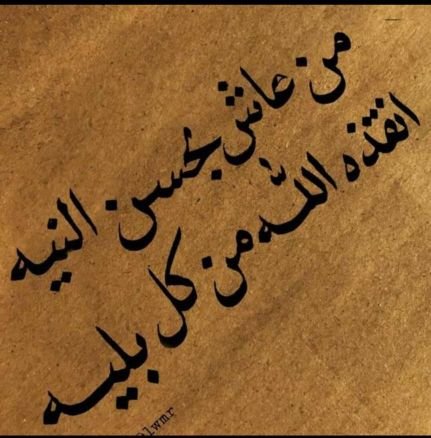 من عاش بحسن النيه
انقذه الله من كل بليه
lwmr